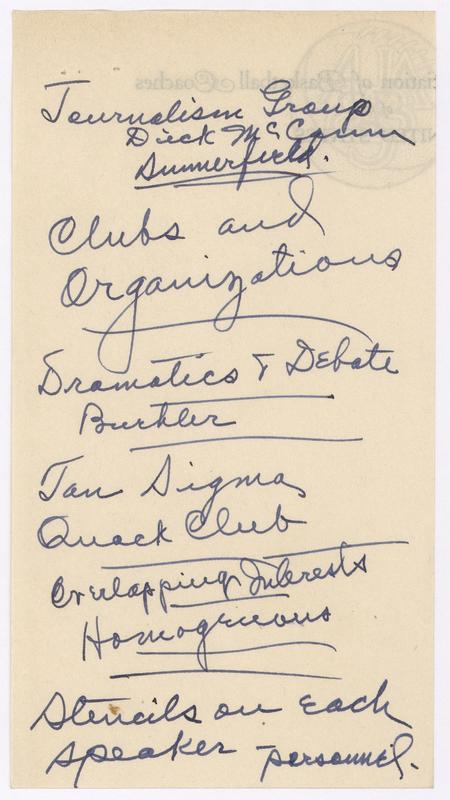 Journalism Group
Dick McCann
Summerfield.
Clubs and
Organizations
Dramatics & Debate
Buehler
Tau Sigma,
Quack Club
Overlapping Interests
Homogenous
Stencils on each
speaker - personnel.